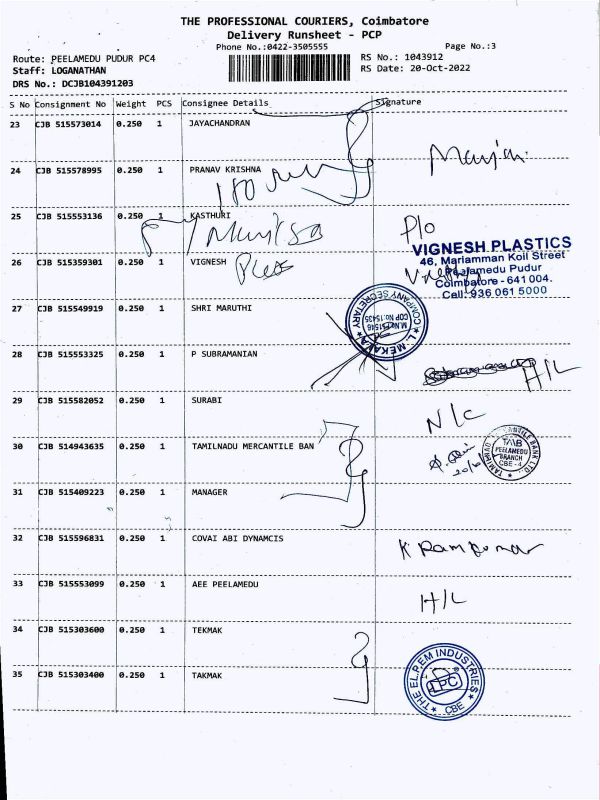 THE PROFESSIONAL COURIERS, Coimbatore
Delivery Runsheet - PCP
Phone No.:0422-3505555
Page No.:3
Route: PEELAMEDU PUDUR PC4
RS No.: 1043912
Staff: LOGANATHAN
RS Date: 20-Oct-2022
DRS No.: DCJB104391203
S No Consignment No Weight PCS Consignee Details Signature
23 CJB 515573014 0.250 1 JAYACHANDRAN
24 CJB 515578995 0.250 1 PRANAV KRISHNA
25 CJB 515553136 0.250 1 KASTHURI
P/o
VIGNESH PLASTICS
46, Mariamman Koil Street
Peelamedu Pudur
Coimbatore - 641 004.
Cell: 936 061 5000
26 CJB 515359301 0.250 1 VIGNESH
27 CJB 515549919 0.250 1 SHRI MARUTHI
COMPANY SECRETARY
L. MEKALA
COP No:15435
28 CJB 515553325 0.250 1 P SUBRAMANIAN
H/L
29 CJB 515582052 0.250 1 SURABI
N/C
30 CJB 514943635 0.250 1 TAMILNADU MERCANTILE BAN
TAMILNAD MERCANTILE BANK LTD.
TMB
PEELAMEDU
BRANCH
CBE - 4
31 CJB 515409223 0.250 1 MANAGER
32 CJB 515596831 0.250 1 COVAI ABI DYNAMCIS
K Ramkumar
33 CJB 515553099 0.250 1 AEE PEELAMEDU
H/L
34 CJB 515303600 0.250 1 TEKMAK
35 CJB 515303400 0.250 1 TAKMAK
THE EL.P.EM INDUSTRIES
LPC
CBE